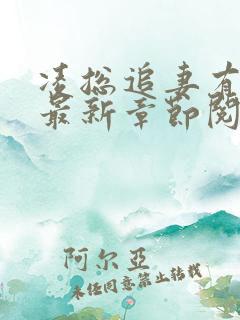 凌总追妻有
最新章节阅
阿尔亚
未经同意禁止转载